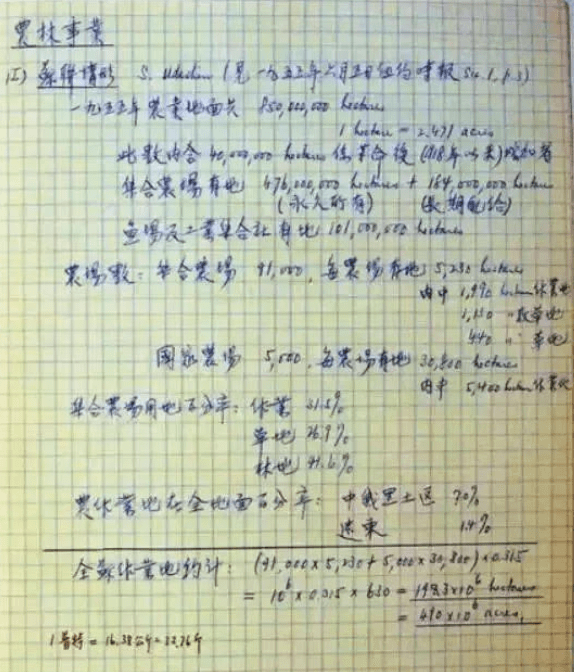 農林事業
(I) 蘇聯情形 S. Udachin (見一九五五年六月五日紐約時報 Sec. 1, p. 3)
一九五五年農業地面共 850,000,000 hectares
1 hectare = 2.471 acres
此數內合 40,000,000 hectares 係革命後 (1918年以來) 增加者
集合農場有地 476,000,000 hectares + 164,000,000 hectares
(永久所有) (長期配給)
及工業集合社有地 101,000,000 hectares
農場數: 集合農場 91,000, 每農場有地 5,230 hectares
內中 1,990 hectares 作業地
1,150 " 牧草地
440 " 草地
國家農場 5,000, 每農場有地 30,800 hectares
內中 5,400 hectares 作業地
集合農場用地百分率: 作業 31.5%
草地 26.9%
林地 41.6%
農作業地在全地面百分率: 中俄黑土區 70%
遠東 1.4%
全蘇作業地約計: (91,000 x 5,230 + 5,000 x 30,800) x 0.315
= 10⁶ x 0.315 x 630 = 198.3 x 10⁶ hectares
= 490 x 10⁶ acres,
1 普特 = 16.38 公斤 = 32.76 斤